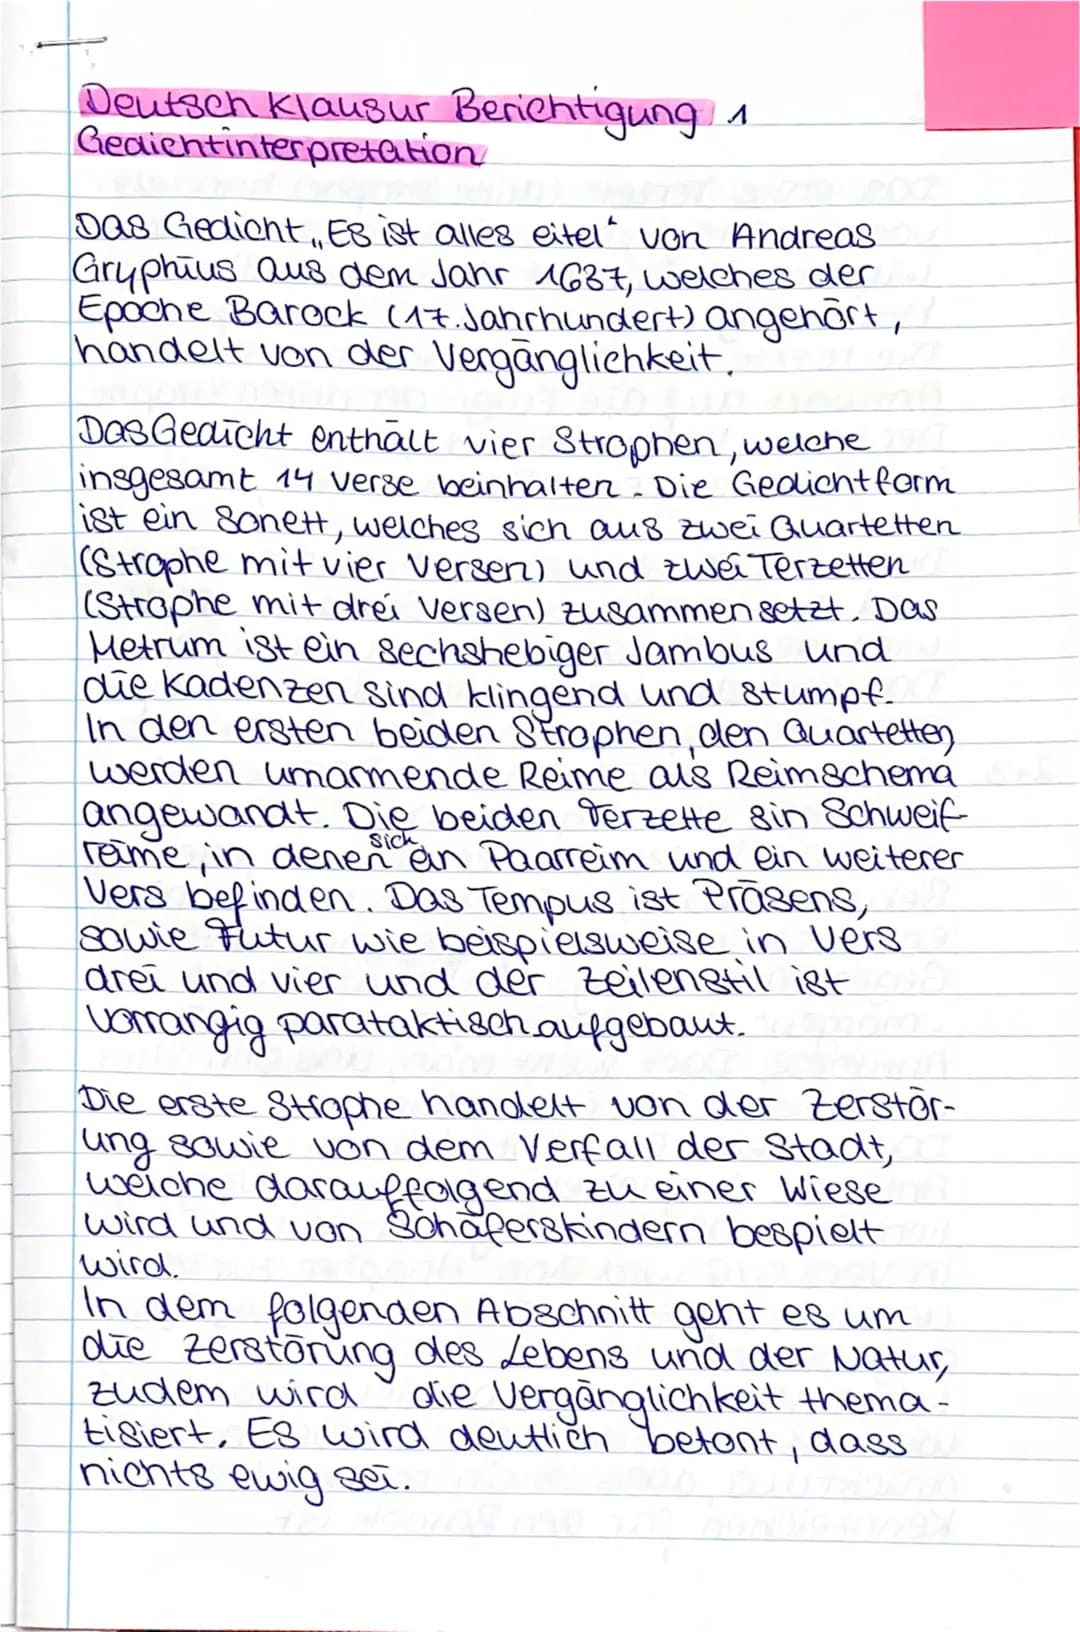 Deutsch Klausur Berichtigung 1
Gedichtinterpretation
Das Gedicht „Es ist alles eitel“ von Andreas
Gryphius aus dem Jahr 1637, welches der
Epoche Barock (17. Jahrhundert) angehört,
handelt von der Vergänglichkeit.
Das Gedicht enthält vier Strophen, welche
insgesamt 14 Verse beinhalten. Die Gedichtform
ist ein Sonett, welches sich aus zwei Quartetten
(Strophe mit vier Versen) und zwei Terzetten
(Strophe mit drei Versen) zusammensetzt. Das
Metrum ist ein sechshebiger Jambus und
die Kadenzen sind klingend und stumpf.
In den ersten beiden Strophen, den Quartetten
werden umarmende Reime als Reimschema
angewandt. Die beiden Terzette sin Schweif-
reime, in denen sich ein Paarreim und ein weiterer
Vers befinden. Das Tempus ist Präsens,
sowie Futur wie beispielsweise in Vers
drei und vier und der Zeilenstil ist
vorrangig parataktisch aufgebaut.
Die erste Strophe handelt von der Zerstör-
ung sowie von dem Verfall der Stadt,
welche darauffolgend zu einer Wiese
wird und von Schäferskindern bespielt
wird.
In dem folgenden Abschnitt geht es um
die Zerstörung des Lebens und der Natur,
zudem wird die Vergänglichkeit thema-
tisiert. Es wird deutlich betont, dass
nichts ewig sei.